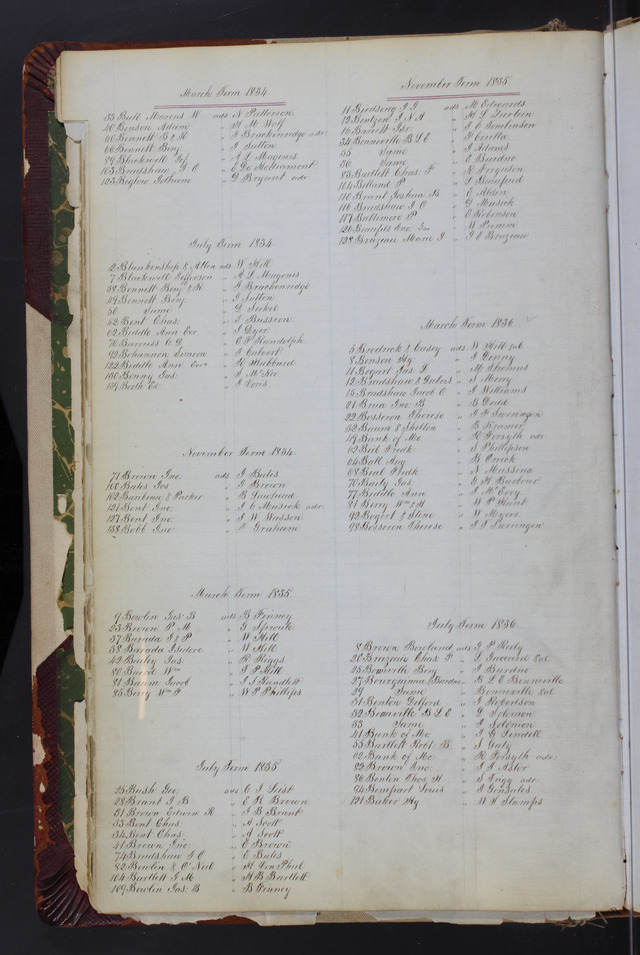 March Term 1834
33 Ball Marcus W ads N Patterson
40 Benson Adam " H M Wolf
60 Bennett B & R " J Brackenridge adr
66 Bennett Benj " J Sutton
89 Blackwell Jef " A L Magenis
103 Bradshaw J C " E Ge McDiarmont
123 Biglow Jotham " G Bryant adr
July Term 1834
2 Blankenship & Alton ads W Hill
7 Blackwell Jefferson " A L Magenis
38 Bennett Benj & R " J Brackenridge
49 Bennett Benj " J Sutton
50 Same " G Sickel
52 Bent Chas " T Busson
62 Biddle Ann Exr " J Dyer
70 Burress C G " O P Randolph
92 Bohannon Simeon " J Calvert
122 Biddle Ann Exr " H Hubbard
130 Benny Jas " S McKee
139 Berth Ed " A Cons
November Term 1834
71 Brown Jno ads J Bates
100 Bates Jos " J Brown
102 Baubeau & Packer " B Gwofund
121 Bent Jno " J C Musick adr
127 Bent Jno " J W Wasson
138 Bobb Jno " P Graham
March Term 1835
9 Bowlin Jas B ads B Finney
23 Brown P M " G Sprouk
37 Barada S & P " W Hill
38 Barada Isidore " W Hill
42 Bailey Jas " R Riggs
80 Baird Wm " J P Hill
81 Bacon Jacob " J J Gundlett
85 Berry Wm P " W P Phillips
July Term 1835
25 Bush Geo ads C J Leist
28 Brant J B " E R Brown
31 Brown Edwin R " J B Brant
33 Bent Chas " A Scott
34 Bent Chas " A Scott
41 Brown Jno " E Brown
74 Bradshaw J C " E Bates
82 Bowlin & O'Neil " H Von Phul
104 Bartlett J M " H B Bartlett
109 Bowlin Jas B " B Finney
November Term 1835
11 Birdsong J G ads M Edwards
12 Bentzen J N A " H L Dierlein
16 Barrett Jsr " J C Tomlinson
34 Bonneville B L E " F Cerillia
35 Same " J Adams
36 Same " E Burdue
83 Bartlett Chas F " R Ferguson
101 Belland P " L Beaufield
110 Brant Joshua B " E Alden
116 Bradshaw J C " G Musick
117 Baltimore P " E Robinson
126 Beaufils Jno Exr " W Primm
128 Bruzeau Marie J " J E Bruzeau
March Term 1836
5 Brodrick & Casey ads W Hill sub
8 Benson Hy " J Denny
11 Bogert Jas L " M Thomas
12 Bradshaw & Gabers " S Merry
15 Bradshaw Jacob C " J Williams
21 Brua Jno B " B Dodd
22 Bosseron Therese " J P Sweringen
32 Baum & Shelton " B Kramer
49 Bank of Mo " R Forsyth adr
62 Bert Fredk " S Phillipson
64 Ball Aug " R Creick
68 Beat Fredk " N Mussina
70 Baily Jas " E H Barbour
77 Biddle Ann " J McEvoy
81 Berry Wm & H " W P Hunt
92 Bogert & Stone " W Myers
98 Bosseron Therese " J S Sweringen
July Term 1836
8 Brown Rowland ads J P Reily
20 Bruzeair Chas T " L Gaccard Ext
25 Bonneville Benj " J Bardue
27 Bourguignou Bardue " B L E Bonneville
29 Same " Bonneville Ext
51 Benton Gelford " J Robertson
52 Bonneville B L E " G Solomon
53 Same " J Solomon
41 Bank of Mo " J G Lindell
55 Bartlett Robt B " S Gaty
62 Bank of Mo " R Forsyth adr
82 Brown Jno " J J Astor
86 Benton Thos H " S Trigg adr
94 Bompart Louis " J Gonzales
121 Baker Hy " W H Stamps